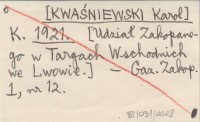 [KWAŚNIEWSKI Karol]
K. 1921. [Udział Zakopane-
go w Targach Wschodnich
we Lwowie.] — Gaz. Zakop.
1, nr 12.